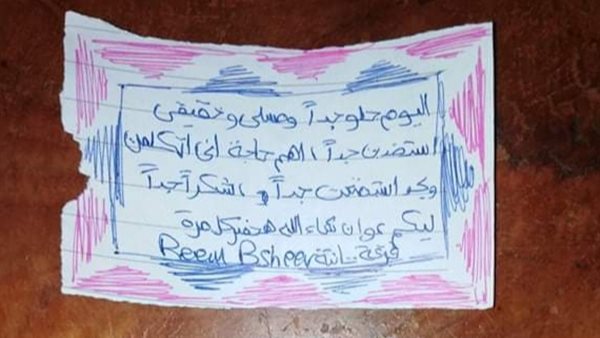 اليوم حلو جداً وصلي وحقيقي
استفدت جداً، اهم حاجة اني اتكلمن
وبجد استمتعت جداً و شكراً جداً
ليكم عوان شاء الله هحضر كل مرة
فرقة تانتة Reem Bsheer